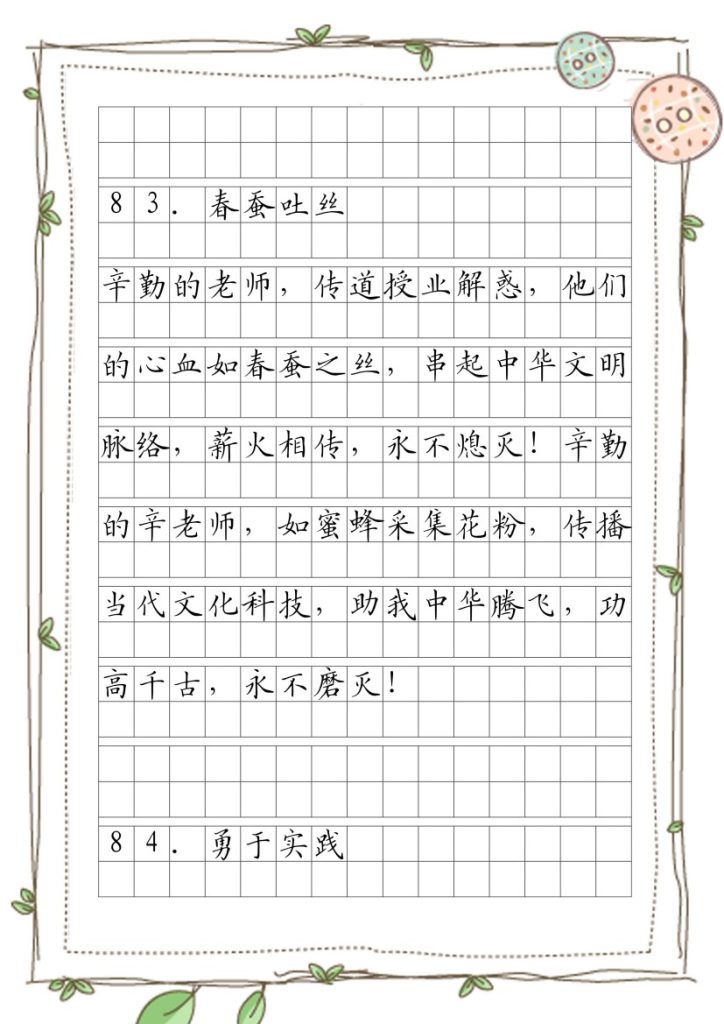 83．春蚕吐丝
辛勤的老师，传道授业解惑，他们
的心血如春蚕之丝，串起中华文明
脉络，薪火相传，永不熄灭！辛勤
的辛老师，如蜜蜂采集花粉，传播
当代文化科技，助我中华腾飞，功
高千古，永不磨灭！
84．勇于实践